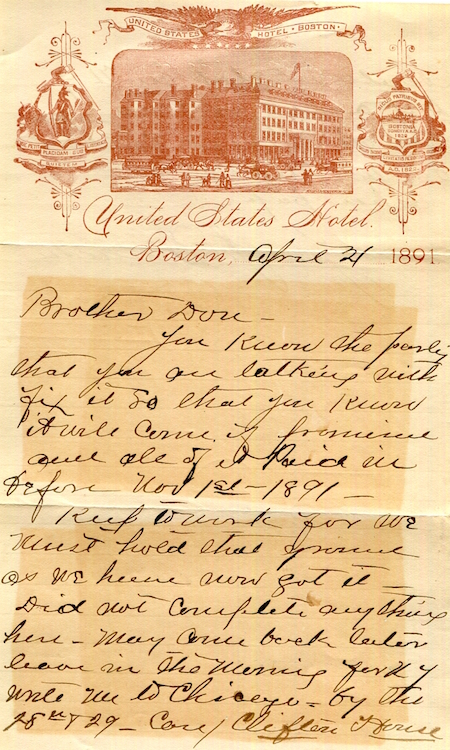 UNITED STATES HOTEL · BOSTON
United States Hotel.
Boston, April 21 1891
Brother Don –
You Know the party
that you are talking with
fix it so that you Know
it will come, if promised
and all of it Paid in
before Nov 1st – 1891 –
Keep to work for we
must hold that ground
as we have now got it –
Did not complete anything
here – May come back later
leave in the morning for NY
write me to Chicago – by the
28th & 29 – Care / Clifton House